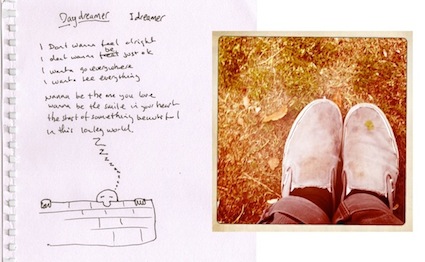 Daydreamer I dreamer
I Don't wanna feel alright
I dont wanna be just ok
I wanta go everywhere
I wanta see everything
wanna be the one you love
wanna be the smile in your heart
the start of something beautiful
in this lonley world
Z
Z
z
z
z
z
z